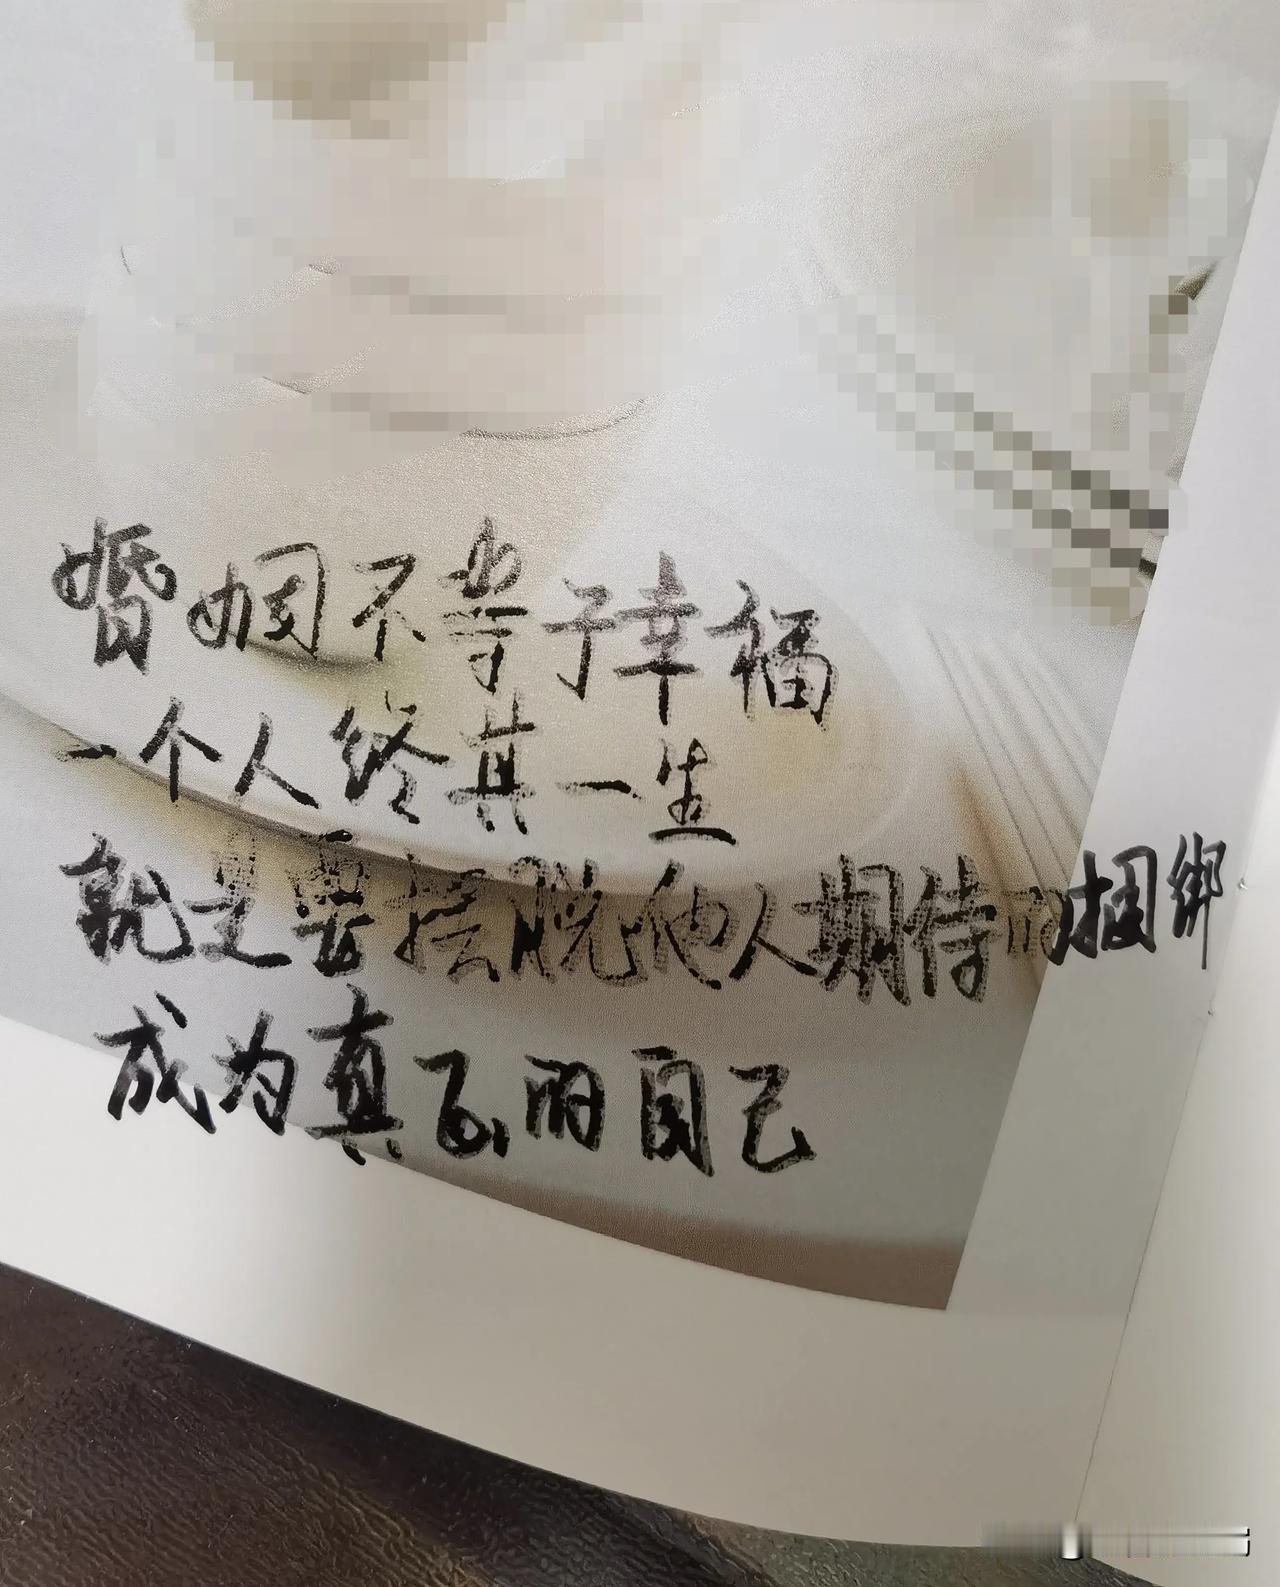 婚姻不等于幸福
一个人终其一生
就是要摆脱他人期待的捆绑
成为真正的自己